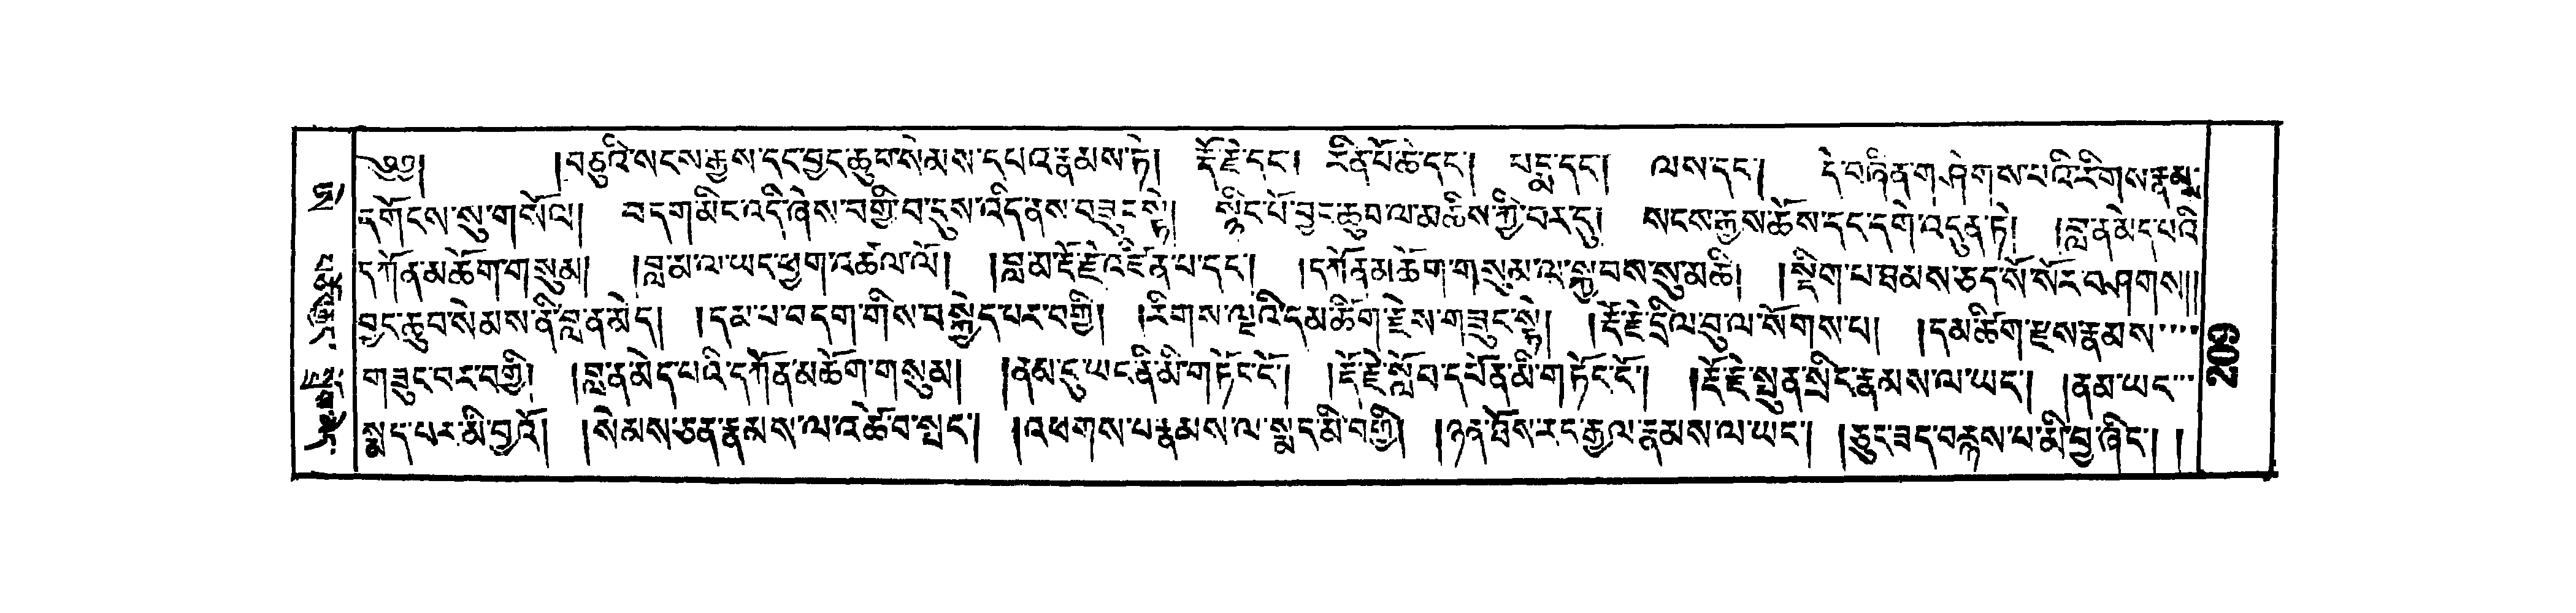 ༄༅། །བཅུའི་སངས་རྒྱས་དང་བྱང་ཆུབ་སེམས་དཔའ་རྣམས་ཏེ། རྡོ་རྗེ་དང་། རིན་པོ་ཆེ་དང་། པདྨ་དང་། ལས་དང་། དེ་བཞིན་གཤེགས་པའི་རིགས་རྣམས་
དགོངས་སུ་གསོལ། བདག་མིང་འདི་ཞེས་བགྱི་བ་དུས་འདི་ནས་བཟུང་སྟེ། སྙིང་པོ་བྱང་ཆུབ་ལ་མཆིས་ཀྱི་བར་དུ། སངས་རྒྱས་ཆོས་དང་དགེ་འདུན་ཏེ། །བླ་ན་མེད་པའི
དཀོན་མཆོག་གསུམ། །བླ་མ་ལ་ཡང་ཕྱག་འཚལ་ལོ། །བླ་མ་རྡོ་རྗེ་འཛིན་པ་དང་། །དཀོན་མཆོག་གསུམ་ལ་སྐྱབས་སུ་མཆི། །སྡིག་པ་ཐམས་ཅད་སོ་སོར་བཤགས།།།
བྱང་ཆུབ་སེམས་ནི་བླ་ན་མེད། །དམ་པ་བདག་གིས་བསྐྱེད་པར་བགྱི། །རིགས་ལྔའི་དམ་ཚིག་རྗེས་གཟུང་སྟེ། །རྡོ་རྗེ་དྲིལ་བུ་ལ་སོགས་པ། །དམ་ཚིག་རྫས་རྣམས་་་་
གཟུང་བར་བགྱི། །བླ་ན་མེད་པའི་དཀོན་མཆོག་གསུམ། །ནམ་དུ་ཡང་ནི་མི་གཏོང་ངོ་། །རྡོ་རྗེ་སློབ་དཔོན་མི་གཏོང་ངོ་། །རྡོ་རྗེ་སྤུན་སྲིང་རྣམས་ལ་ཡང་། །ནམ་ཡང་་་
སྨད་པར་མི་བྱའོ། །སེམས་ཅན་རྣམས་ལ་འཚེ་བ་སྤང་། །འཕགས་པ་རྣམས་ལ་སྨད་མི་བགྱི། །ཉན་ཐོས་རང་རྒྱལ་རྣམས་ལ་ཡང་། །ཅུང་ཟད་བརྙས་པ་མི་བྱ་ཞིང་། །